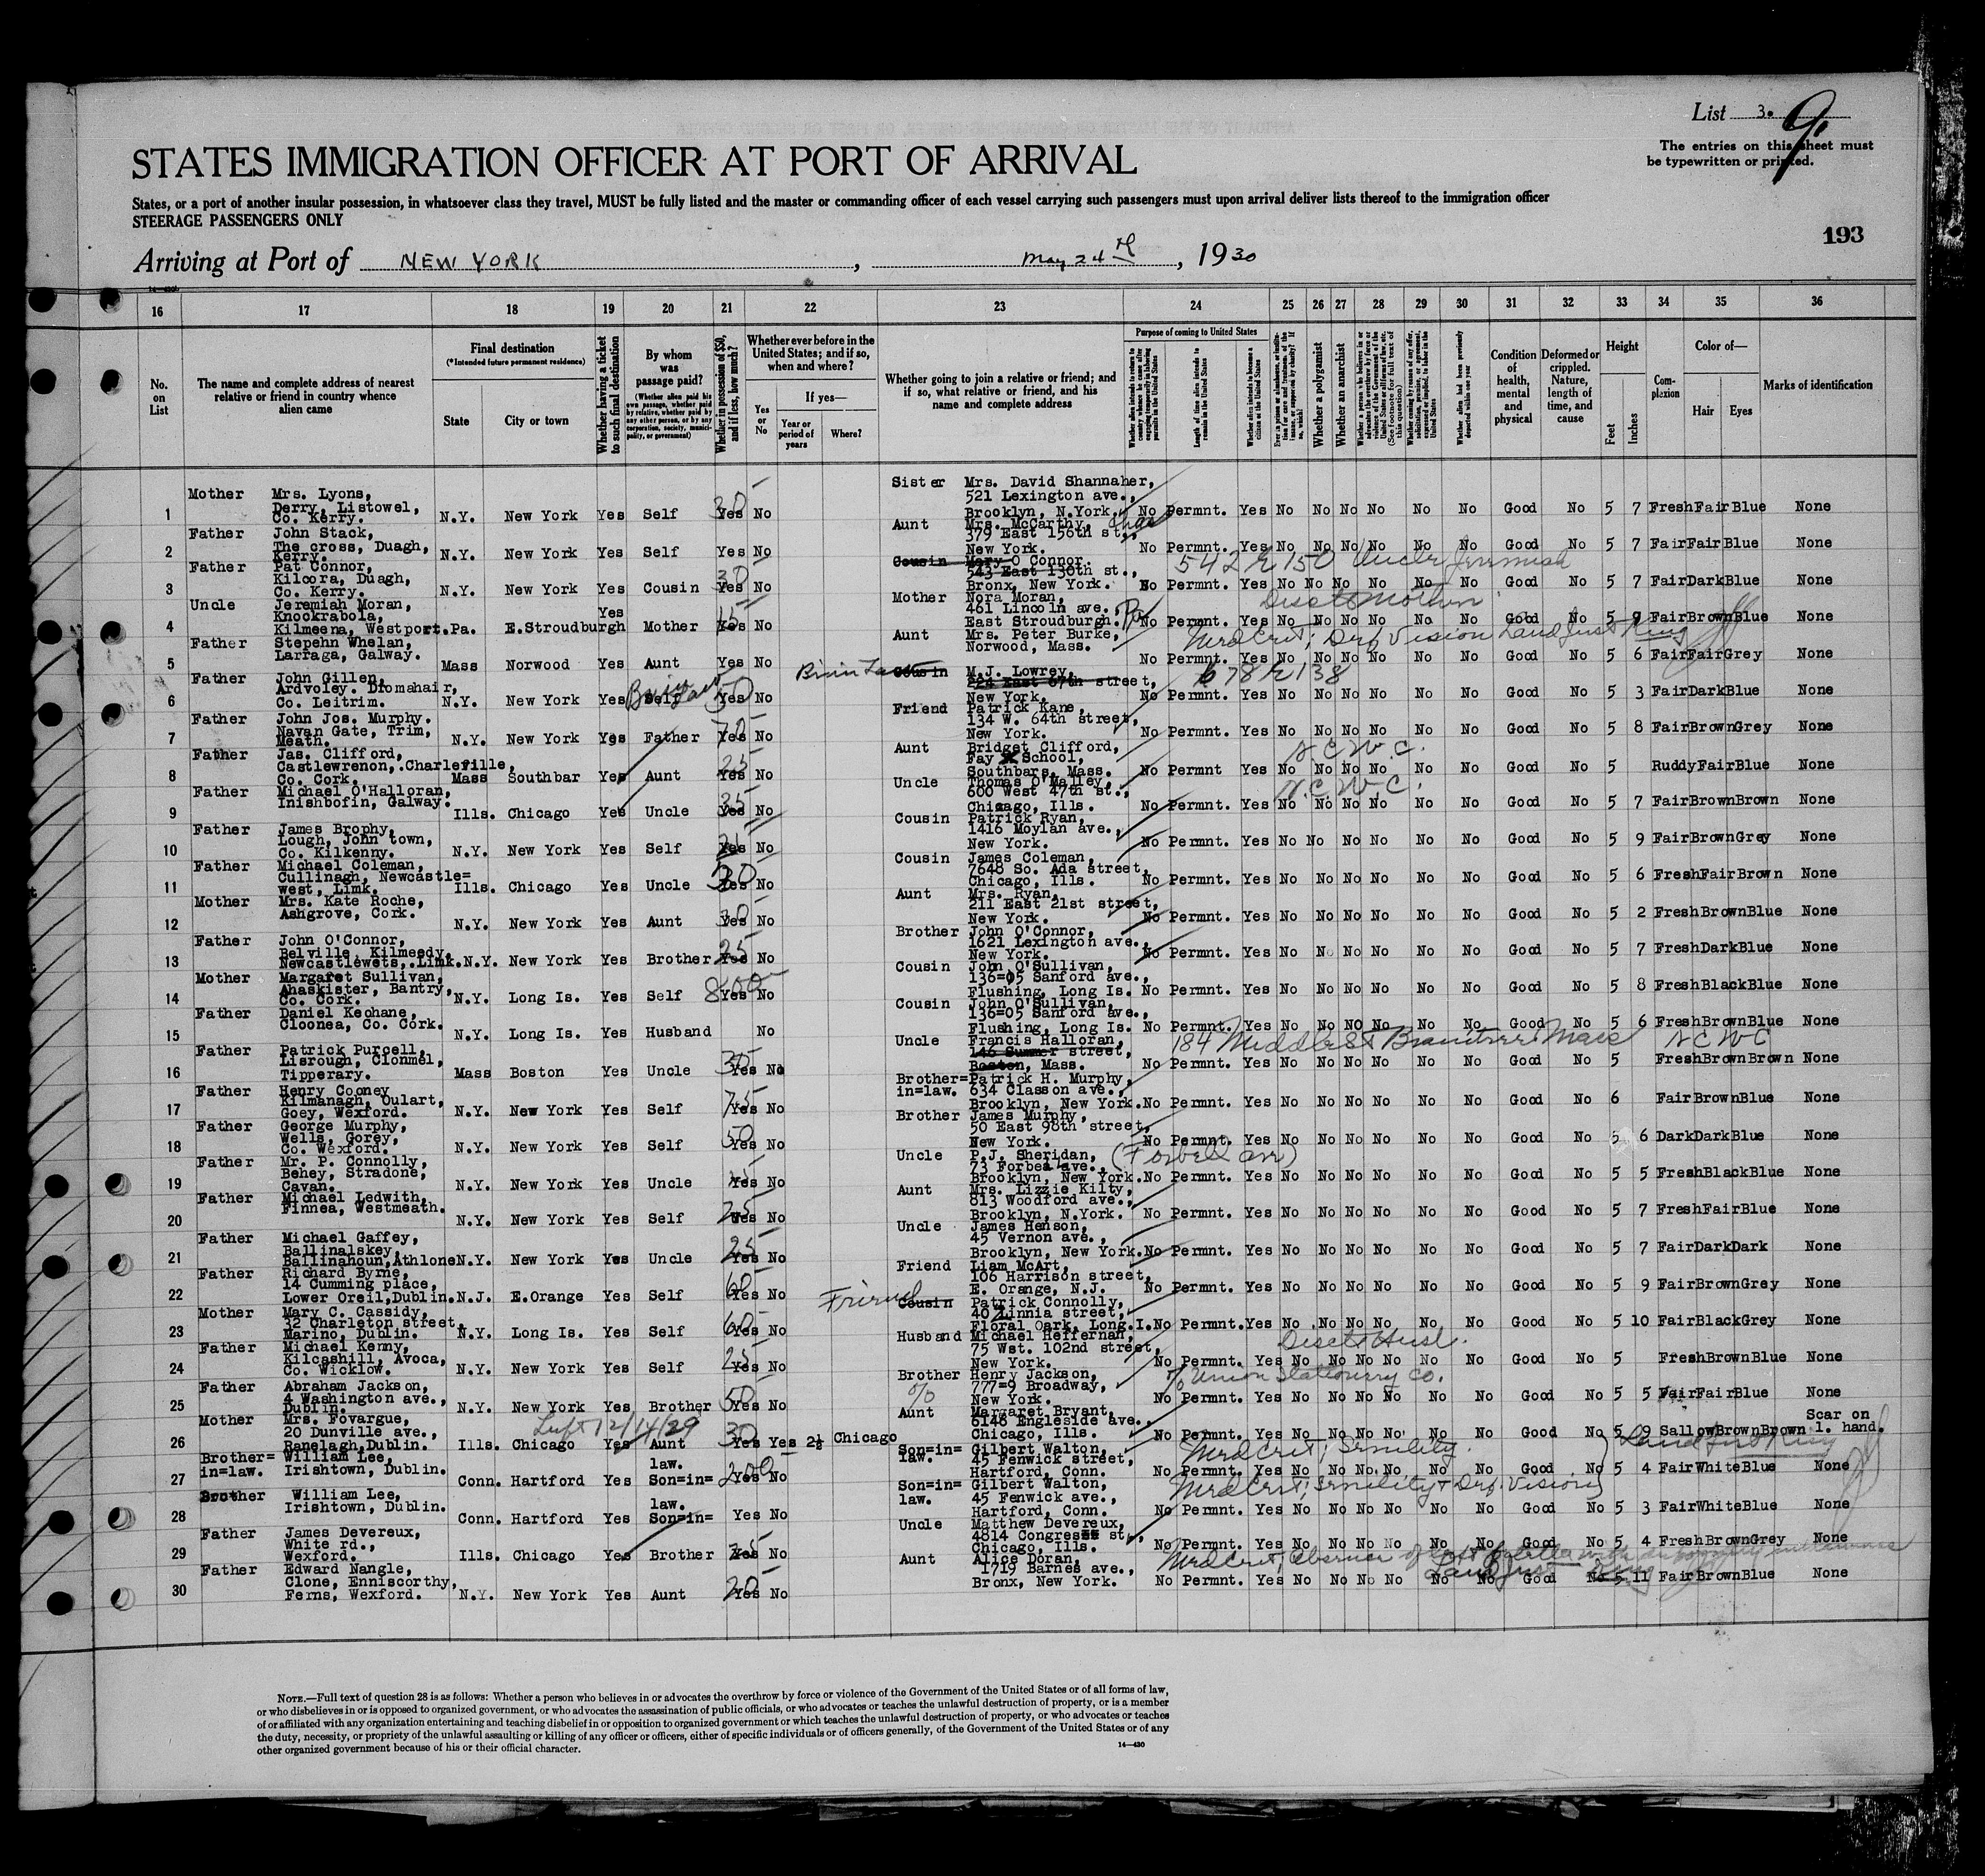 List 3. 9.
The entries on this sheet must
be typewritten or printed.
STATES IMMIGRATION OFFICER AT PORT OF ARRIVAL
States, or a port of another insular possession, in whatsoever class they travel, MUST be fully listed and the master or commanding officer of each vessel carrying such passengers must upon arrival deliver lists thereof to the immigration officer
STEERAGE PASSENGERS ONLY
193
Arriving at Port of NEW YORK, May 24th, 1930
16 17 18 19 20 21 22 23 24 25 26 27 28 29 30 31 32 33 34 35 36
No. on List
The name and complete address of nearest relative or friend in country whence alien came
Final destination
(*Intended future permanent residence)
State
City or town
Whether having a ticket to such final destination
By whom was passage paid?
(Whether alien paid his own passage, whether paid by relative, whether paid by any other person, or by any corporation, society, municipality, or government)
Whether in possession of $50, and if less, how much?
Whether ever before in the United States; and if so, when and where?
Yes or No
If yes—
Year or period of years
Where?
Whether going to join a relative or friend; and if so, what relative or friend, and his name and complete address
Purpose of coming to United States
Length of time alien intends to remain in the United States
Whether alien intends to become a citizen of the United States
Whether a polygamist
Whether an anarchist
Condition of health, mental and physical
Deformed or crippled. Nature, length of time, and cause
Height
Feet
Inches
Complexion
Color of—
Hair
Eyes
Marks of identification
1 Mother Mrs. Lyons, Derry, Listowel, Co. Kerry. N.Y. New York Yes Self 30 Yes No Sister Mrs. David Shannaher, 521 Lexington ave., Brooklyn, N.York. No Permnt. Yes No No No No No No Good No 5 7 Fresh Fair Blue None
2 Father John Stack, The cross, Duagh, Kerry. N.Y. New York Yes Self Yes No Aunt Mrs. McCarthy, 379 East 156th st., New York. No Permnt. Yes No No No No No No Good No 5 7 Fair Fair Blue None
3 Father Pat Connor, Kilcora, Duagh, Co. Kerry. N.Y. New York Yes Cousin 30 Yes No Cousin Mary O Connor. 543 East 130th st., Bronx, New York. 542 E 150 Uncle Jeremiah No Permnt. Yes No No No No No No Good No 5 7 Fair Dark Blue None
4 Uncle Jeremiah Moran, Knockrabola, Kilmeena, Westport. Pa. E.Stroudburgh Yes Mother 15 Yes No Mother Nora Moran, 461 Lincoln ave. East Stroudburgh. Pa No Permnt. Yes No No No No No No Good No 5 9 Fair Brown Blue None
5 Father Stepehn Whelan, Larraga, Galway. Mass Norwood Yes Aunt Yes No Aunt Mrs. Peter Burke, Norwood, Mass. No Permnt. Yes No No No No No No Good No 5 6 Fair Fair Grey None
6 Father John Gillen, Ardvoley. Dromahair, Co. Leitrim. N.Y. New York Yes Self 50 Yes No Cousin M.J. Lowrey, 224 East 67th street, New York. 678 E 138 No Permnt. Yes No No No No No No Good No 5 3 Fair Dark Blue None
7 Father John Jos. Murphy. Navan Gate, Trim, Meath. N.Y. New York Yes Father 70 Yes No Friend Patrick Kane, 134 W. 64th street, New York. No Permnt. Yes No No No No No No Good No 5 8 Fair Brown Grey None
8 Father Jas. Clifford, Castlewrenon,.Charleville, Co. Cork. Mass Southbar Yes Aunt 25 Yes No Aunt Bridget Clifford, Fay School, Southbars, Mass. N.C.W.C. No Permnt Yes No No No No No No Good No 5 Ruddy Fair Blue None
9 Father Michael O'Halloran, Inishbofin, Galway. Ills. Chicago Yes Uncle 35 Yes No Uncle Thomas O'Malley, 600 West 47th st., Chicago, Ills. N.C.W.C. No Permnt. Yes No No No No No No Good No 5 7 Fair Brown Brown None
10 Father James Brophy, Lough, John town, Co. Kilkenny. N.Y. New York Yes Self 25 Yes No Cousin Patrick Ryan, 1416 Moylan ave., New York. No Permnt. Yes No No No No No No Good No 5 9 Fair Brown Grey None
11 Father Michael Coleman, Cullinagh, Newcastle= west, Limk. Ills. Chicago Yes Uncle 50 Yes No Cousin James Coleman, 7648 So. Ada street, Chicago, Ills. No Permnt. Yes No No No No No No Good No 5 6 Fresh Fair Brown None
12 Mother Mrs. Kate Roche, Ashgrove, Cork. N.Y. New York Yes Aunt 30 Yes No Aunt Mrs. Ryan, 211 East 21st street, New York. No Permnt. Yes No No No No No No Good No 5 2 Fresh Brown Blue None
13 Father John O'Connor, Belville, Kilmeedy, Newcastlewets,.Limk. N.Y. New York Yes Brother 25 Yes No Brother John O'Connor, 1621 Lexington ave., New York. No Permnt. Yes No No No No No No Good No 5 7 Fresh Dark Blue None
14 Mother Margaret Sullivan, Ahaskister, Bantry, Co. Cork. N.Y. Long Is. Yes Self 800 Yes No Cousin John O'Sullivan, 136=05 Sanford ave., Flushing, Long Is. No Permnt. Yes No No No No No No Good No 5 8 Fresh Black Blue None
15 Father Daniel Keohane, Cloonea, Co. Cork. N.Y. Long Is. Yes Husband No Cousin John O'Sullivan, 136=05 Sanford ave., Flushing, Long Is. No Permnt. Yes No No No No No No Good No 5 6 Fresh Brown Blue None
16 Father Patrick Purcell, Lisrough, Clonmel, Tipperary. Mass Boston Yes Uncle 30 Yes No Uncle Francis Halloran, 146 Summer street, Boston, Mass. 184 Middle St Braintree Mass N C W C No Permnt. Yes No No No No No No Good No 5 Fresh Brown Brown None
17 Father Henry Cooney Kilmanagh, Oulart, Goey, Wexford. N.Y. New York Yes Self 75 Yes No Brother= in=law. Patrick H. Murphy, 634 Classon ave., Brooklyn, New York. No Permnt. Yes No No No No No No Good No 6 Fair Brown Blue None
18 Father George Murphy, Wells, Gorey, Co. Wexford. N.Y. New York Yes Self 50 Yes No Brother James Murphy, 50 East 98th street, New York. No Permnt. Yes No No No No No No Good No 5 6 Dark Dark Blue None
19 Father Mr. P. Connolly, Behey, Stradone, Cavan. N.Y. New York Yes Uncle Yes No Uncle P.J. Sheridan, 73 Forbes ave., Brooklyn, New York. No Permnt. Yes No No No No No No Good No 5 5 Fresh Black Blue None
20 Father Michael Ledwith, Finnea, Westmeath. N.Y. New York Yes Self 25 Yes No Aunt Mrs. Lizzie Kilty, 813 Woodford ave., Brooklyn, N.York. No Permnt. Yes No No No No No No Good No 5 7 Fresh Fair Blue None
21 Father Michael Gaffey, Ballinalskey, Ballinahoun,Athlone N.Y. New York Yes Uncle 25 Yes No Uncle James Henson, 45 Vernon ave., Brooklyn, New York. No Permnt. Yes No No No No No No Good No 5 7 Fair Dark Dark None
22 Father Richard Byrne, 14 Cumming place, Lower Oreil,Dublin. N.J. E.Orange Yes Self 60 Yes No Friend Liam McArt, 106 Harrison street, E. Orange, N.J. No Permnt. Yes No No No No No No Good No 5 9 Fair Brown Grey None
23 Mother Mary C. Cassidy, 32 Charleton street, Marino, Dublin. N.Y. Long Is. Yes Self 60 Yes No Friend Cousin Patrick Connolly, 40 Zinnia street, Floral Oark, Long.I. No Permnt. Yes No No No No No No Good No 5 10 Fair Black Grey None
24 Father Michael Kenny, Kilcashill, Avoca, Co. Wicklow. N.Y. New York Yes Self 25 Yes No Husband Michael Heffernan, 75 Wst. 102nd street, New York. No Permnt. Yes No No No No No No Good No 5 Fresh Brown Blue None
25 Father Abraham Jackson, 4 Washington ave., Dublin. N.Y. New York Yes Brother 50 Yes No Brother Henry Jackson, 777=9 Broadway, New York. % Union Stationery Co. No Permnt. Yes No No No No No No Good No 5 5 Fair Fair Blue None
26 Mother Mrs. Fovargue, 20 Dunville ave., Ranelagh,Dublin. Left 12/14/29 Ills. Chicago Yes Aunt 30 Yes Yes 2½ Chicago Aunt Margaret Bryant, 6146 Engleside ave., Chicago, Ills. No Permnt. Yes No No No No No No Good No 5 9 Sallow Brown Brown Scar on l. hand.
27 Brother= in=law. William Lee, Irishtown, Dublin. Conn. Hartford Yes Son=in= law. 200 Yes No Son=in= law. Gilbert Walton, 45 Fenwick street, Hartford, Conn. Med Cert; Senility. No Permnt. Yes No No No No No No Good No 5 4 Fair White Blue None
28 Brother William Lee, Irishtown, Dublin. Conn. Hartford Yes Son=in= law. Yes No Son=in= law. Gilbert Walton, 45 Fenwick ave., Hartford, Conn. Med Cert; Senility + Def. Vision No Permnt. Yes No No No No No No Good No 5 3 Fair White Blue None
29 Father James Devereux, White rd., Wexford. Ills. Chicago Yes Brother 35 Yes No Uncle Matthew Devereux, 4814 Congress st., Chicago, Ills. No Permnt. Yes No No No No No No Good No 5 4 Fresh Brown Grey None
30 Father Edward Nangle, Clone, Enniscorthy, Ferns, Wexford. N.Y. New York Yes Aunt 20 Yes No Aunt Alice Doran, 1719 Barnes ave., Bronx, New York. No Permnt. Yes No No No No No No Good No 5 11 Fair Brown Blue None
NOTE.—Full text of question 28 is as follows: Whether a person who believes in or advocates the overthrow by force or violence of the Government of the United States or of all forms of law,
or who disbelieves in or is opposed to organized government, or who advocates the assassination of public officials, or who advocates or teaches the unlawful destruction of property, or is a member
of or affiliated with any organization entertaining and teaching disbelief in or opposition to organized government or which teaches the unlawful destruction of property, or who advocates or teaches
the duty, necessity, or propriety of the unlawful assaulting or killing of any officer or officers, either of specific individuals or of officers generally, of the Government of the United States or of any
other organized government because of his or their official character.
14—430